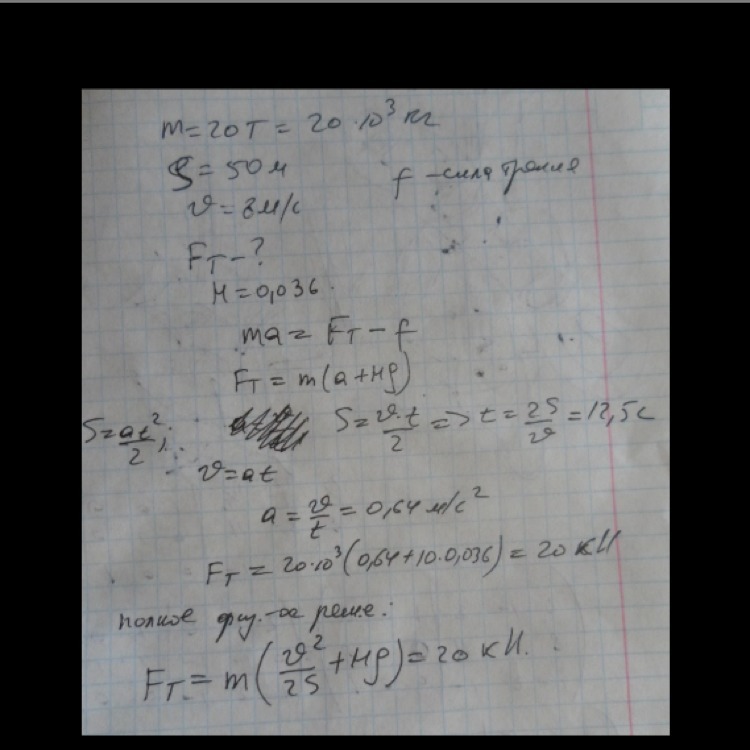 m = 20 т = 20 · 10³ кг
S = 50 м f - сила трения
v = 8 м/с
Fт - ?
μ = 0,036
ma = Fт - f
Fт = m(a + μg)
S = at²/2; S = v·t/2 => t = 2S/v = 12,5 с
v = at
a = v/t = 0,64 м/с²
Fт = 20·10³(0,64 + 10·0,036) = 20 кН
полное физ.-ое реше.:
Fт = m(v²/2S + μg) = 20 кН.